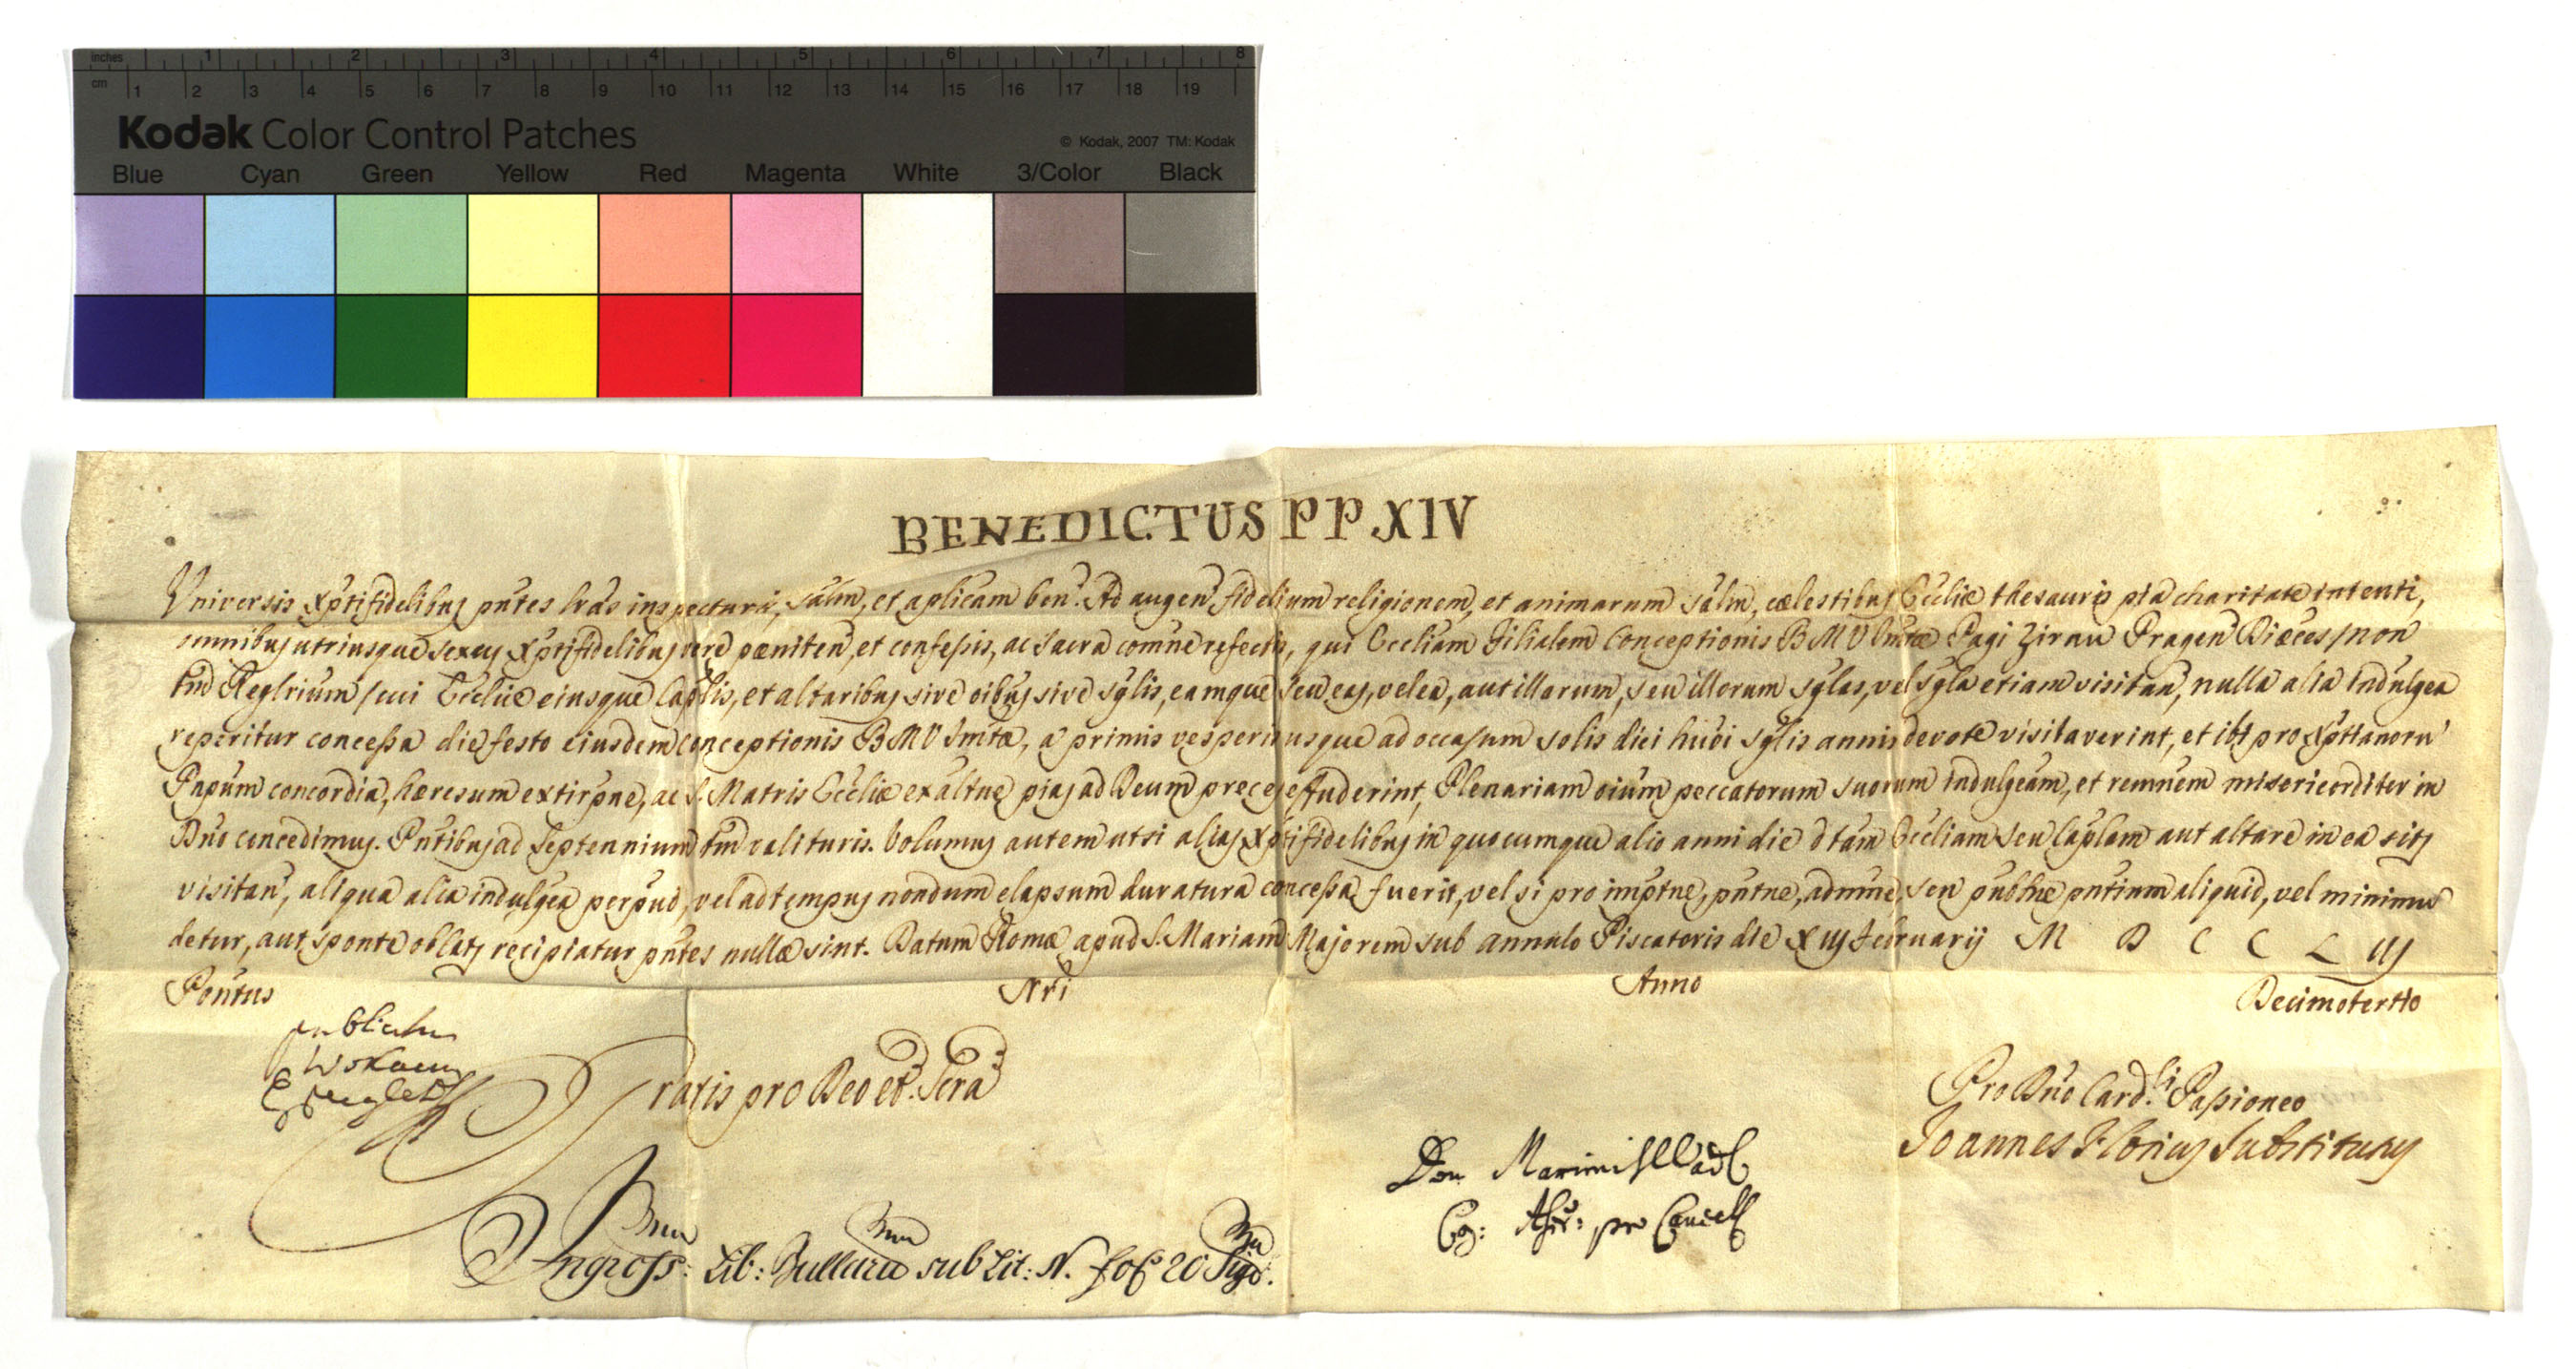 inches 1 2 3 4 5 6 7 8
cm 1 2 3 4 5 6 7 8 9 10 11 12 13 14 15 16 17 18 19
Kodak Color Control Patches
© Kodak, 2007 TM: Kodak
Blue Cyan Green Yellow Red Magenta White 3/Color Black
BENEDICTUS PP XIV
Universis Xptifidelibus pñtes lrás inspecturis, salm, et aplicam ben. Ad augen fidelium religionem, et animarum salm, cælestibus Ecclie thesauris pia charitate intenti,
omnibus utriusque sexus Xptifidelibus vere pæniten, et confessis, ac sacra comne refectis, qui Eccliam filialem Conceptionis BMV Imtæ Pagi Zirau Pragen Diæces/non
tnd Reglrium/cui Ecclie eiusque Caplis, et altaribus sive oibus sive sglis, eamque seu eas, vel ea, aut illarum, seu illorum sglas, vel sgla etiam visitan, nulla alia indulgea
reperitur concessa die festo eiusdem Conceptionis BMV Imtæ, a primis vesperis usque ad occasum solis diei huoi sglis annis devote visitaverint, et ibi pro Xpttanoru
Papum concordia, hæresum extirpne, ac S. Matris Ecclie exaltne pias ad Deum preces effuderint, Plenariam oium peccatorum suorum indulgeam, et remnem misericorditer in
Dno concedimus. Pntibus ad Septennium tnd valituris. Volumus autem ut si alias Xptifidelibus in quocumque alio anni die dtam Eccliam seu Caplam aut altare in ea sitj
visitan, aliqua alia indulgea perpuo, vel ad tempus nondum elapsum duratura concessa fuerit, vel si pro imptne, pntne, admne, seu publne pntium aliquid, vel minimu
detur, aut sponte oblatj recipiatur pntes nullæ sint. Datum Romæ apud S. Mariam Majorem sub annulo Piscatoris die X iij Februarij M D C C L iij
Pontus Nri Anno Decimotertio
Gratis pro Deo et Scra
Pro Dno Card.li Passioneo
Joannes Florius Substitutus
Ingross: Lib: Bullaru sub Lit: N. fol 20